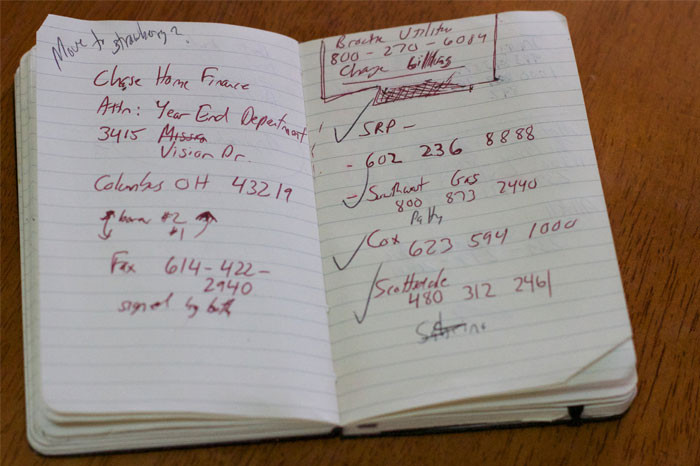 Move to strawberry?
Chase Home Finance
Attn: Year End Department
3415 Mission
Vision Dr.
Columbus OH 43219
#2
#1
Fax 614-422-
2940
signed by both
Utilities
800-270-6084
Change billing
SRP -
- 602 236 8888
- Southwest Gas
800 873 2440
Patty
Cox 623 594 1000
Scottsdale
480 312 2461